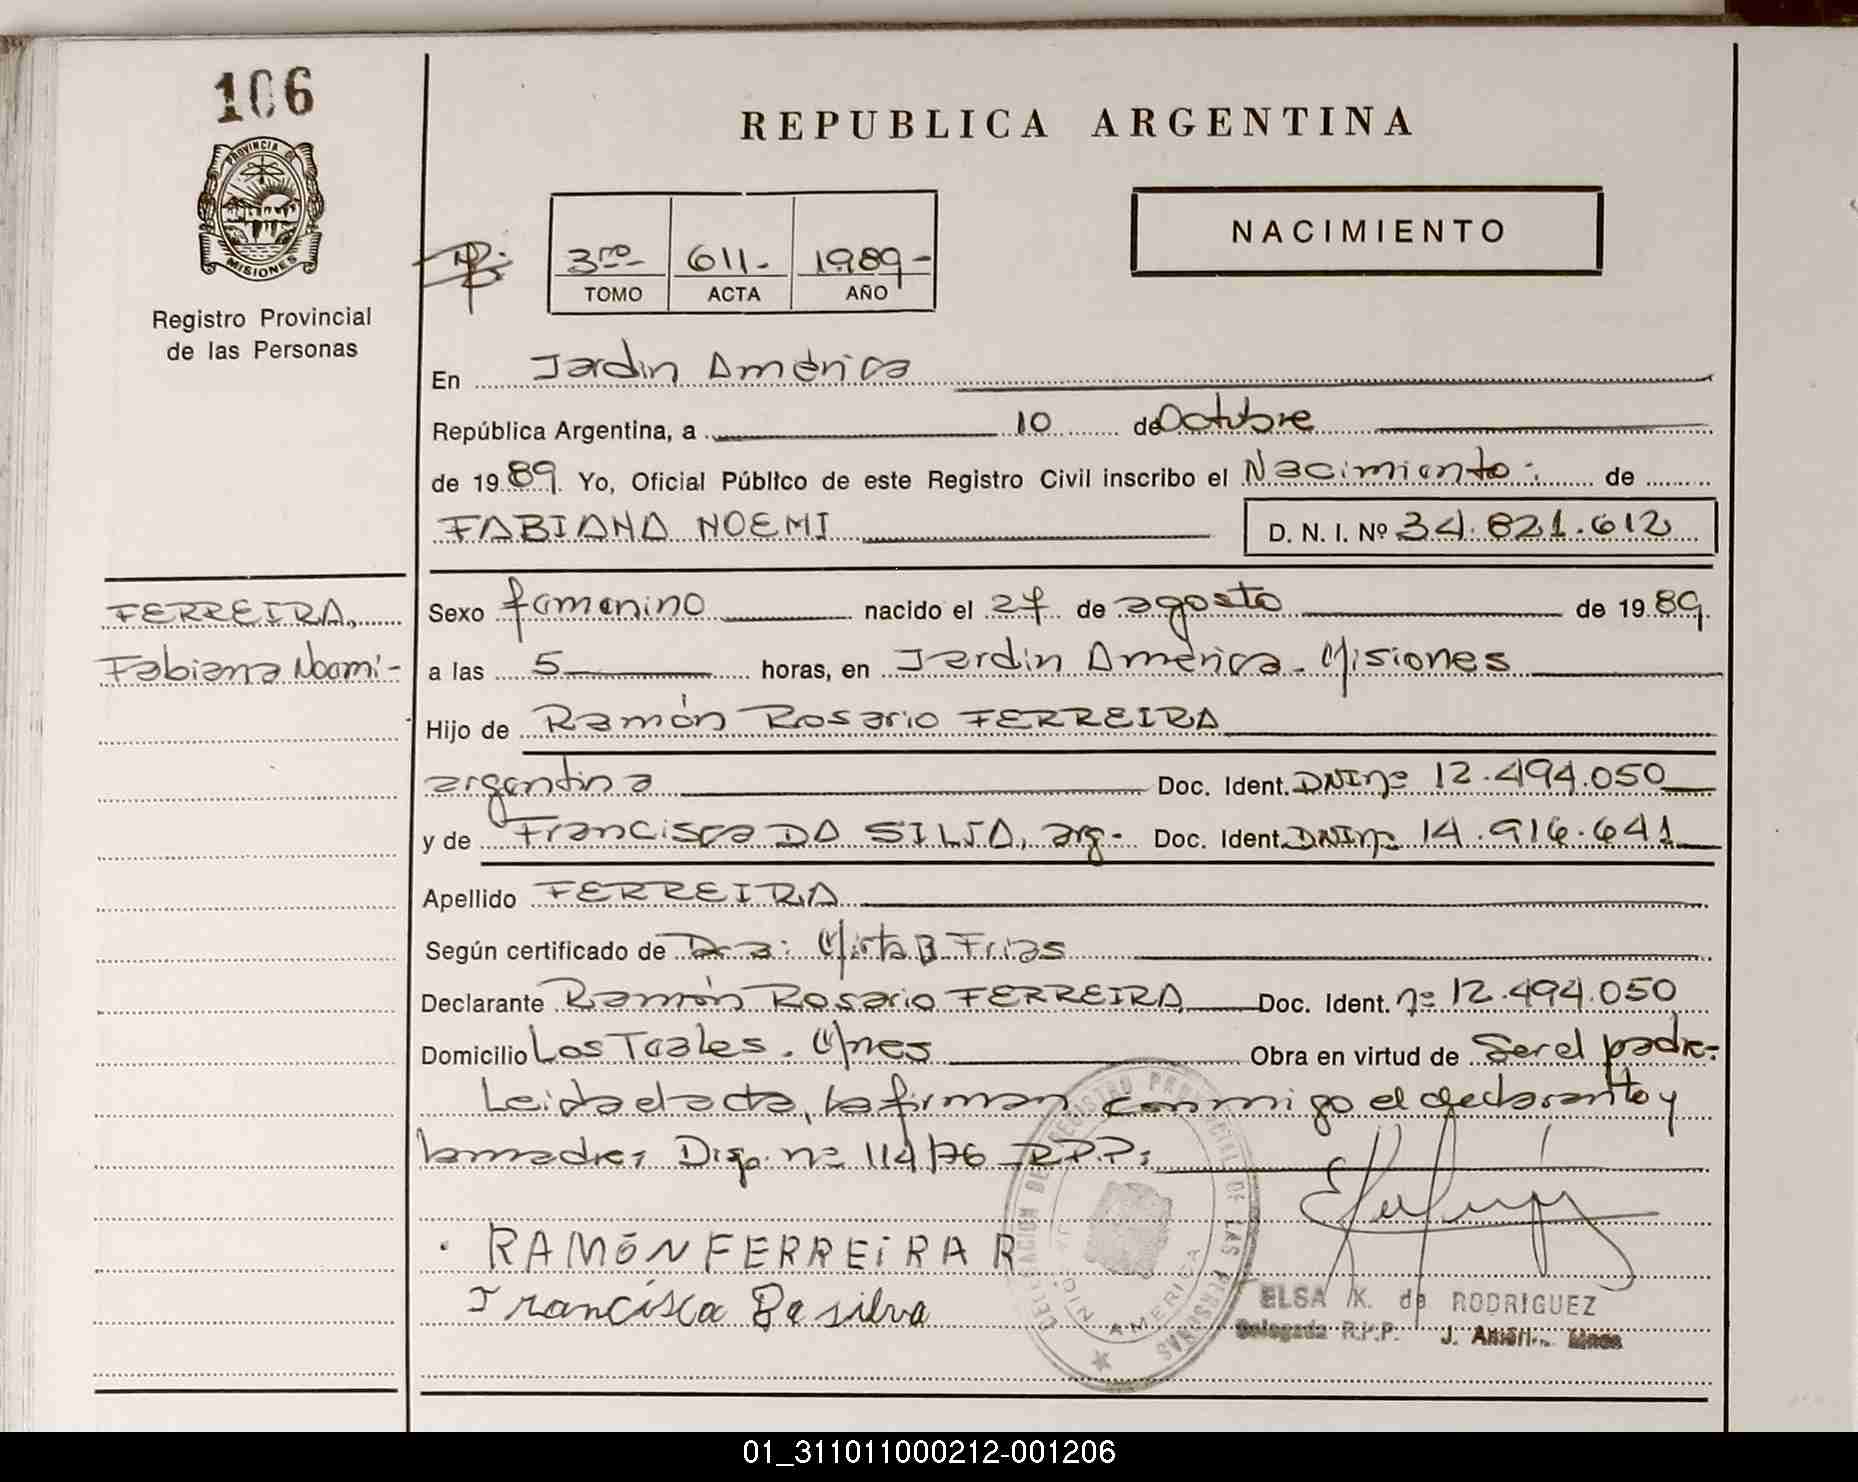 106
REPUBLICA ARGENTINA
PROVINCIA DE
MISIONES
NACIMIENTO
3ro- 611.- 1989-
TOMO ACTA AÑO
Registro Provincial
de las Personas
En Jardin América
República Argentina, a 10 de Octubre
de 1989. Yo, Oficial Público de este Registro Civil inscribo el Nacimiento: de
FABIANA NOEMI D. N. I. Nº 34.821.612
FERREIRA,
Fabiana Noemi-
Sexo femenino nacido el 27 de agosto de 1989.
a las 5 horas, en Jardin América - Misiones
Hijo de Ramón Rosario FERREIRA
argentina Doc. Ident. DNI nº 12.494.050
y de Francisca DA SILVA, arg- Doc. Ident. DNI nº 14.916.641
Apellido FERREIRA
Según certificado de Dra: Mirta B Frias
Declarante Ramón Rosario FERREIRA Doc. Ident. nº 12.494.050
Domicilio Los Teales. Mnes Obra en virtud de Ser el padre-
Leida el acta, la firman conmigo el declarante y
la madre, Disp. nº 114/76 R.P.P.
RAMÓN FERREiRA R
Francisca Da silva
DELEGACION DEL REGISTRO PROVINCIAL DE LAS PERSONAS
AMERICA
ELSA K. de RODRIGUEZ
Delegada R.P.P. J. Mnes
01_311011000212-001206